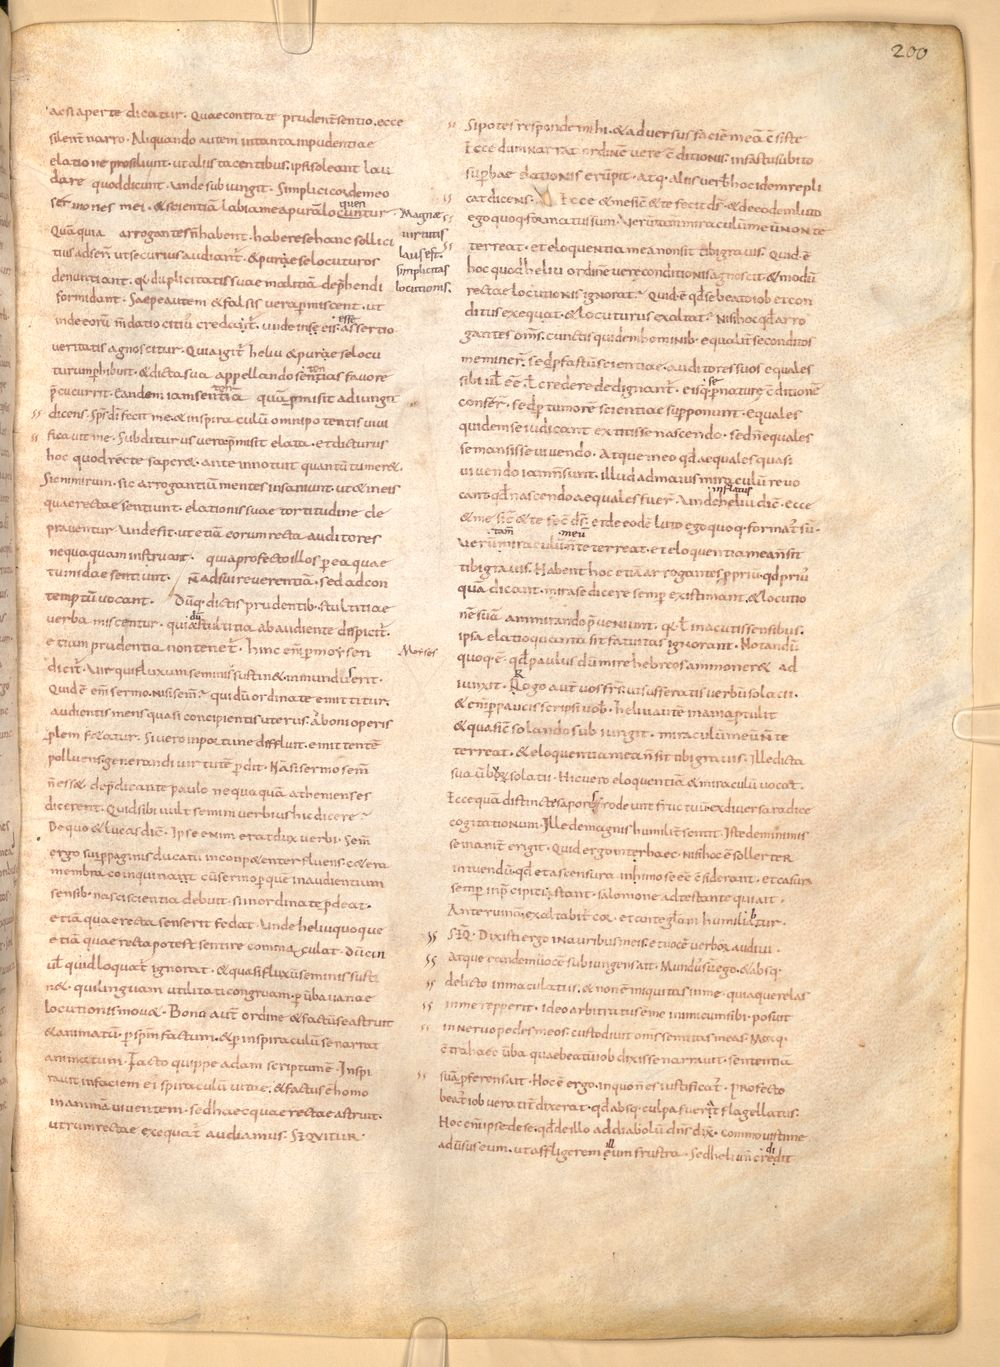 200
ac si aperte dicatur. Quae contra te prudenter sentio. ecce
silenter narro. Aliquando autem in tanta inpudentiae
elatione prosiliunt. ut aliis tacentibus. ipsi soleant lau
dare quod dicunt. unde subiungit. Simplici corde meo
sermones mei. & scientiã labia mea purã locuntur.
quen
Magnae
uirtutis
laus est.
simplicitas
locutionis.
Quã quia arrogantes ñ habent. habere se hanc sollici
tius adserunt. ut securius audiant̃. & pure se locuturos
denuntiant. q̃ duplicitatis suae malitiã dep̃hendi
formidant. Saepe autem & falsis uera p̃miscent. ut
inde eorũ mendatio citius credat̃. unde in se eis assertio
esse
ueritatis agnoscitur. Quia igit̃ heliu & pure se locu
turum phibuit. & dicta sua appellando sententias fauore
p̃cucurrit. tandem iam sententia quã p̃misit adiungit
dicens. Sp̃s dĩ fecit me. & inspiraculũ omnipotentis uiui
ficauit me. Subditurus uera p̃misit elata. et dicturus
hoc quod recte saper&. ante innotuit quantũ tumer&.
Sic nimirum. sic arrogantium mentes insaniunt. ut & in eis
quae rectae sentiunt. elationis suae tortitudine de
prauentur. Unde fit. ut etiã eorum recta auditores
nequaquam instruant. quia profecto illos p̃ ea quae
tumidae sentiunt. ñ ad sui reuerentiã. sed ad con
temptũ uocant. Dũq; dictis prudentib; stultitiae
uerba miscentur. quia dũ stultitia ab audiente dispicit̃.
etiam prudentia non tenet̃. hinc em̃ p moysen
Moyses
dicit̃. Uir qui fluxum seminis sustin&. inmundus erit.
Quid ẽ em̃ sermo. nisi sem̃? qui dũ ordinate emittitur.
audientis mens quasi concipientis uterus. ad boni operis
p̃lem fetatur. Si uero inportune diffluit. emittentẽ
polluens. generandi uirtutẽ p̃dit. Nã si sermo sem̃
ñ ess&. dep̃dicante paulo nequaquã athenienses
dicerent. Quid sibi uult seminiuerbius hic dicere?
De quo & lucas dic̃. Ipse enim erat dux uerbi. Sem̃
ergo sui p paginis ducatũ inconpetenter fluens cetera
membra coinquinat. cũ sermo p que in audientium
sensib; nasci scientia debuit. si inordinate p̃deat.
etiã quae recta senserit fedat. unde heliu quoque
etiã quae recta potest sentire commaculat. Dũ cui
uĩ quid loquat̃ ignorat. & quasi fluxũ seminis susti
n&. qui linguam utilitati congruam. p uerba uanae
locutionis mou&. Bono aut̃ ordine & factũ se astruit
& animatũ. p sp̃m factum. & p inspiraculũ se narrat
animatum. Facto quippe adam scriptum ẽ. Inspi
rauit in faciem ei spiraculũ uitae. & factus ẽ homo
in animã uiuentem. sed haec quae rectae astruit.
utrum rectae exequat̃ audiamus. Sequitur.
Si potes responde mihi. & aduersus faciẽ meã cõsiste
Ecce dum narrat ordinẽ uere cõditionis. in fastu subito
superbae elationis erũpit. atq; aliis uerbis hoc idem repli
cat dicens. Ecce & me sic̃ & te fecit dš. & de eodem luto
ego quoq; formatus sum. Uerũtam miraculũ meũ non te
terreat. et eloquentia mea non sit tibi grauis. Quid ẽ
hoc quod heliu ordinẽ uere conditionis agnoscit. & modũ
rectae locutionis ignorat? Quid ẽ qd se beato iob et con
ditus exequat. & locuturus exaltat? Nisi hoc qd arro
gantes om̃s. cunctis quidem hominib; equalit̃ se conditos
meminer̃. sed p fastũ scientiae. auditores suos equales
sibi uĩ eẽ. ĩ credere dedignant̃. eisq; se p naturẽ cõditionẽ
conferr̃. sed p tumorẽ scientiae supponunt. Equales
quidem se iudicant extitisse nascendo. sed ñ equales
se mansisse uiuendo. Atque in eo qd aequales quasi
uiuendo iam ñ sunt. illud ad maius miraculũ reuo
cant. qd nascendo aequales fuer̃. Unde heliu dic̃. ecce
inflatus
& me sic̃ & te fec̃ dš. et de eodẽ luto ego quoq; format̃ sũ.
tam̃ meũ
Uerũ miraculũ ñ te terreat. et eloquentia mea ñ sit
tibi grauis. Habent hoc etiã arrogantes p priũ. qd priũ
quã dicant. mira se dicere semp existimant. & locutio
nẽ suã ammirando p̃ueniunt. q; ĩ in acutis sensibus.
ipsa elatio quanta sit fatuitas ignorant. Notandũ
quoq; ẽ. qd paulus dũ mire hebreos ammoner& ad
iunxit. Rogo aut̃ uos fr̃s. ut sufferatis uerbũ solacii.
& em̃ p paucis scripsi uob;. heliu autẽ inania ptulit
& quasi cõsolando subiungit. miraculũ meũ ñ te
terreat. & eloquentia mea ñ sit tibi grauis. Ille dicta
sua uerbũ uocat solatii. Hic uero eloquentiã & miraculũ uocat.
Ecce quã distincte saporis prodeunt fructuũ ex diuersa radice
cogitationum. Ille de magnis humilit̃ sentit. Iste de minimis
se inanit̃ erigit. Quid ergo inter haec. nisi hoc ẽ sollerter
intuendũ. qd et ascensura in himo se eẽ cõsiderant. et casura
semp in p̃cipiti stant. salomone adtestante qui ait.
Ante ruinã exaltabit̃ cor. et ante glam humiliabitur.
SEQ. Dixisti ergo in auribus meis. et uocẽ uerborũ audiui.
Atque eandem uocẽ subiungens ait. Mundus sũ ego. & absq;
delicto inmaculatus. & non ẽ iniquitas in me. quia querelas
in me repperit. ideo arbitratus ẽ me inimicum sibi. posuit
in neruo pedes meos. custodiuit om̃s semitas meas. Moxq;
cõtra haec uerba quae beatũ iob dixisse narrauit. sententiã
suã pferens ait. Hoc ẽ ergo. in quo ñ es iustificat̃. Profecto
beat̃ iob uera cit̃ dixerat. qd absq; culpa fuerit flagellatus.
Hoc em̃ ipse de se. qd de illo ad diabolũ dñs dix̃. Commouisti me
aduersus eum. ut affligerem eum frustra. Sed heliu ñ credit